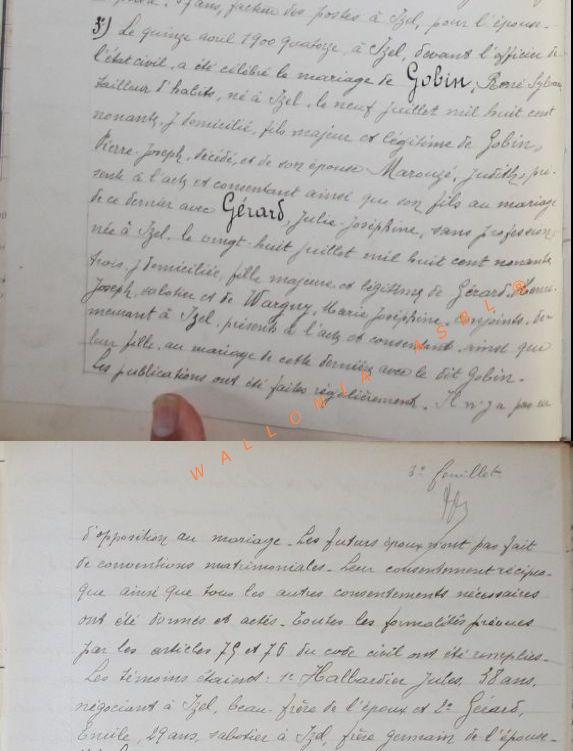 ans, facteur des postes à Izel, pour l'épouse.
3°) Le quinze avril 1900 quatorze, à Izel, devant l'officier de
l'état civil, a été célébré le mariage de Gobin, René Sylvain
tailleur d'habits, né à Izel, le neuf juillet mil huit cent
nonante, y domicilié, fils majeur et légitime de Gobin,
Pierre-Joseph, décédé, et de son épouse Marouzé, Judith, pré-
sente à l'acte et consentant ainsi que son fils au mariage
de ce dernier avec Gérard, Julie-Joséphine, sans profession,
née à Izel, le vingt-huit juillet mil huit cent nonante
trois, y domiciliée, fille majeure et légitime de Gérard,
Joseph, sabotier et de Wargny, Marie Joséphine, conjoints, de-
meurant à Izel, présents à l'acte et consentant ainsi que
leur fille, au mariage de cette dernière avec le dit Gobin.
Les publications ont été faites régulièrement. Il n'y a pas eu
WALLONIA ASBL®
3e feuillet
d'opposition au mariage. Les futurs époux n'ont pas fait
de conventions matrimoniales. Leur consentement récipro-
que ainsi que tous les autres consentements nécessaires
ont été donnés et actés. Toutes les formalités prévues
par les articles 75 et 76 du code civil ont été remplies.
Les témoins étaient: 1° Hallardier Jules, 38 ans,
négociant à Izel, beau-frère de l'époux et 2° Gérard,
Emile, 29 ans, sabotier à Izel, frère germain de l'épouse.